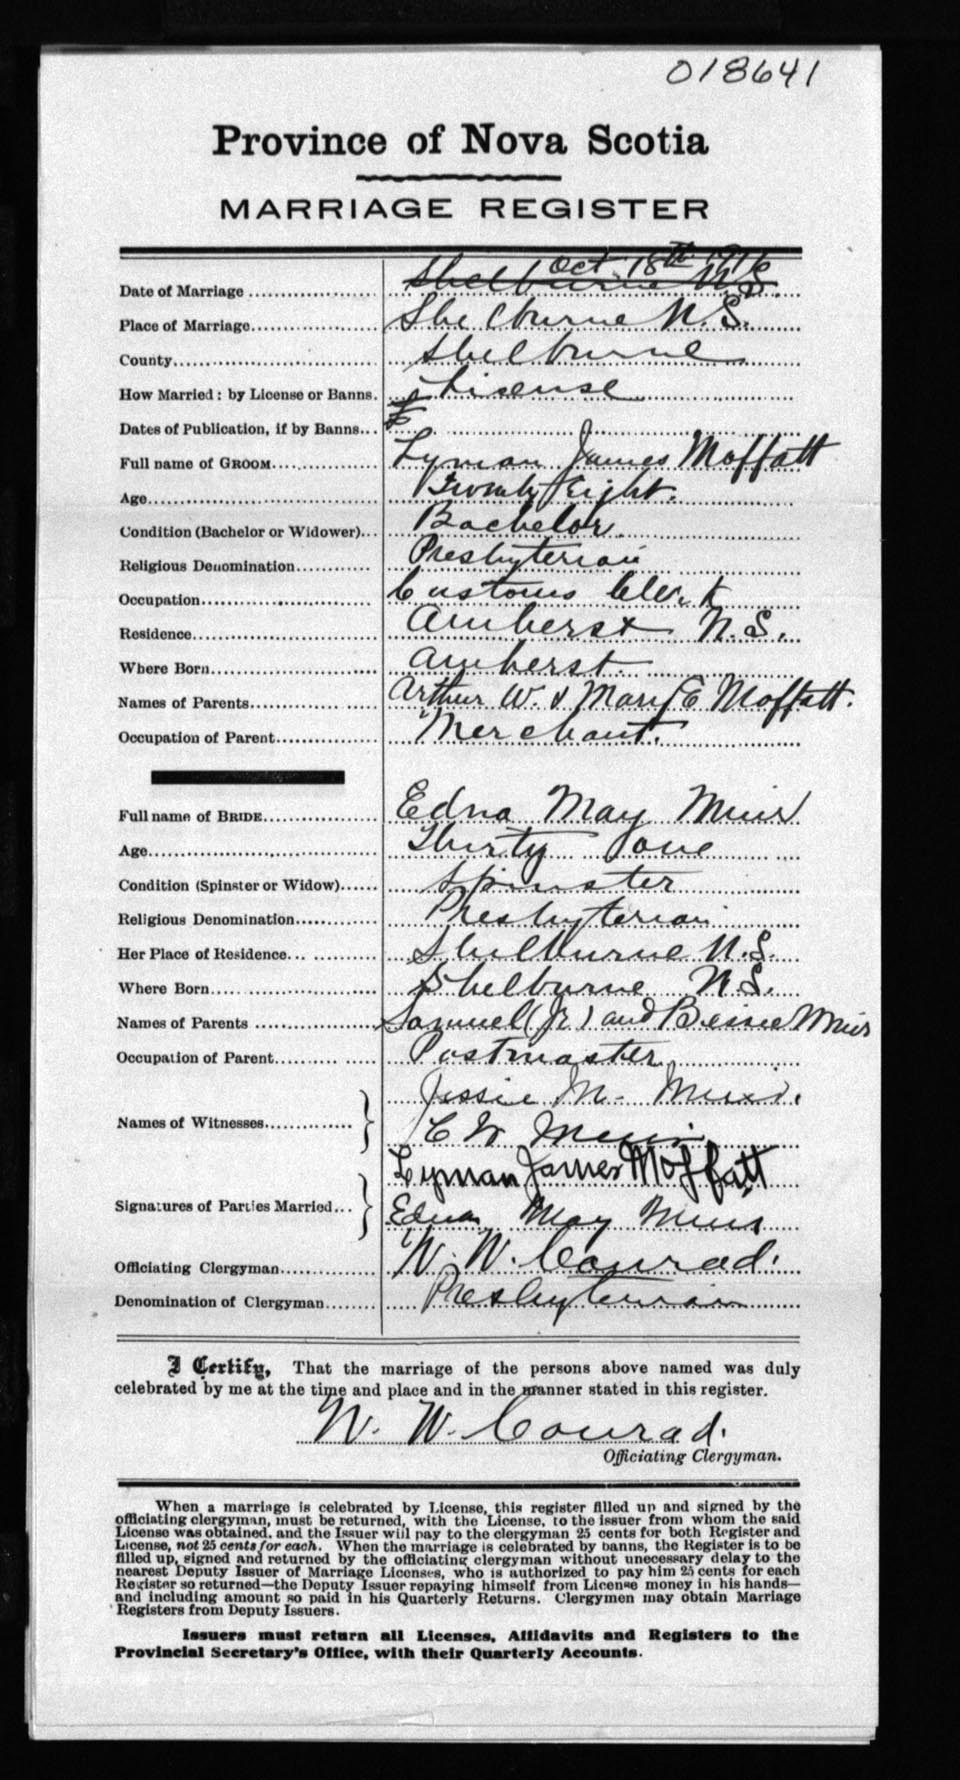 018641
Province of Nova Scotia
MARRIAGE REGISTER
Oct. 18th 1916
Date of Marriage Shelburne N.S.
Place of Marriage Shelburne N.S.
County Shelburne
How Married: by License or Banns. License
Dates of Publication, if by Banns
Full name of GROOM Lyman James Moffatt
Age Twenty Eight.
Condition (Bachelor or Widower) Bachelor.
Religious Denomination Presbyterian
Occupation Customs Clerk
Residence Amherst N.S.
Where Born Amherst.
Names of Parents Arthur W. & Mary E Moffatt.
Occupation of Parent Merchant.
Full name of BRIDE Edna May Muir
Age Thirty One
Condition (Spinster or Widow) Spinster
Religious Denomination Presbyterian
Her Place of Residence Shelburne N.S.
Where Born Shelburne N.S.
Names of Parents Samuel (Jr) and Bessie Muir
Occupation of Parent Postmaster
Jessie M. Muir.
Names of Witnesses
C W Muir
Lyman James Moffatt
Signatures of Parties Married
Edna May Muir
Officiating Clergyman W. W. Conrad.
Denomination of Clergyman Presbyterian
I Certify, That the marriage of the persons above named was duly
celebrated by me at the time and place and in the manner stated in this register.
W. W. Conrad.
Officiating Clergyman.
When a marriage is celebrated by License, this register filled up and signed by the
officiating clergyman, must be returned, with the License, to the issuer from whom the said
License was obtained, and the Issuer will pay to the clergyman 25 cents for both Register and
License, not 25 cents for each. When the marriage is celebrated by banns, the Register is to be
filled up, signed and returned by the officiating clergyman without unnecessary delay to the
nearest Deputy Issuer of Marriage Licenses, who is authorized to pay him 25 cents for each
Register so returned—the Deputy Issuer repaying himself from License money in his hands—
and including amount so paid in his Quarterly Returns. Clergymen may obtain Marriage
Registers from Deputy Issuers.
Issuers must return all Licenses, Affidavits and Registers to the
Provincial Secretary's Office, with their Quarterly Accounts.